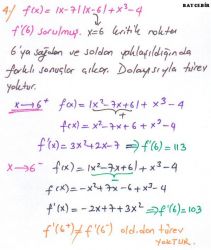 BAY CEBİR
4/ f(x) = |x-7||x-6| + x³-4
f'(6) sorulmuş. x=6 kritik nokta
6'ya sağdan ve soldan yaklaşıldığında
farklı sonuçlar çıkar. Dolayısıyla türev
yoktur.
x→6⁺ f(x) = |x²-7x+6| + x³-4
+
f(x) = x²-7x+6 + x³-4
f'(x) = 3x²+2x-7 ⇒ f'(6) = 113
x→6⁻ f(x) = |x²-7x+6| + x³-4
-
f(x) = -x²+7x-6+x³-4
f'(x) = -2x+7+3x² ⇒ f'(6) = 103
f'(6⁺) ≠ f'(6⁻) old.dan türev
YOKTUR.